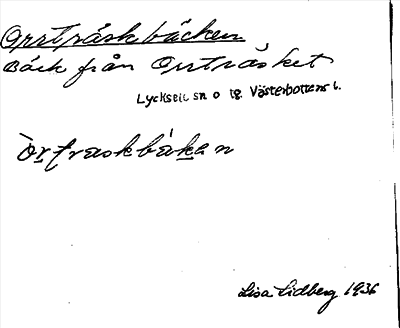 Orrträskbäcken
Bäck från Orrträsket
Lycksele sn o tg. Västerbottens l.
Òrtraskbäkan
Lisa Lidberg 1936